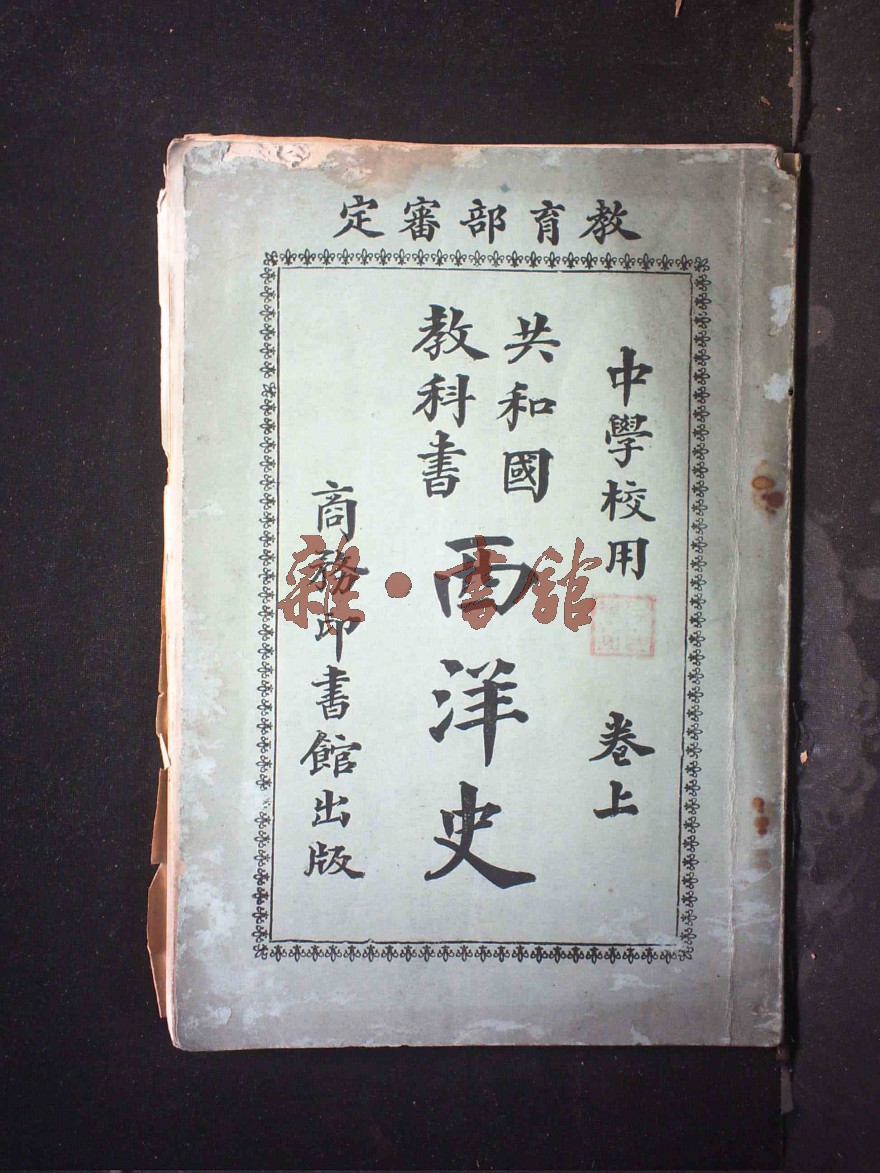 教育部審定
中學校用
卷上
共和國
教科書
西洋史
商務印書館出版
雜·書館